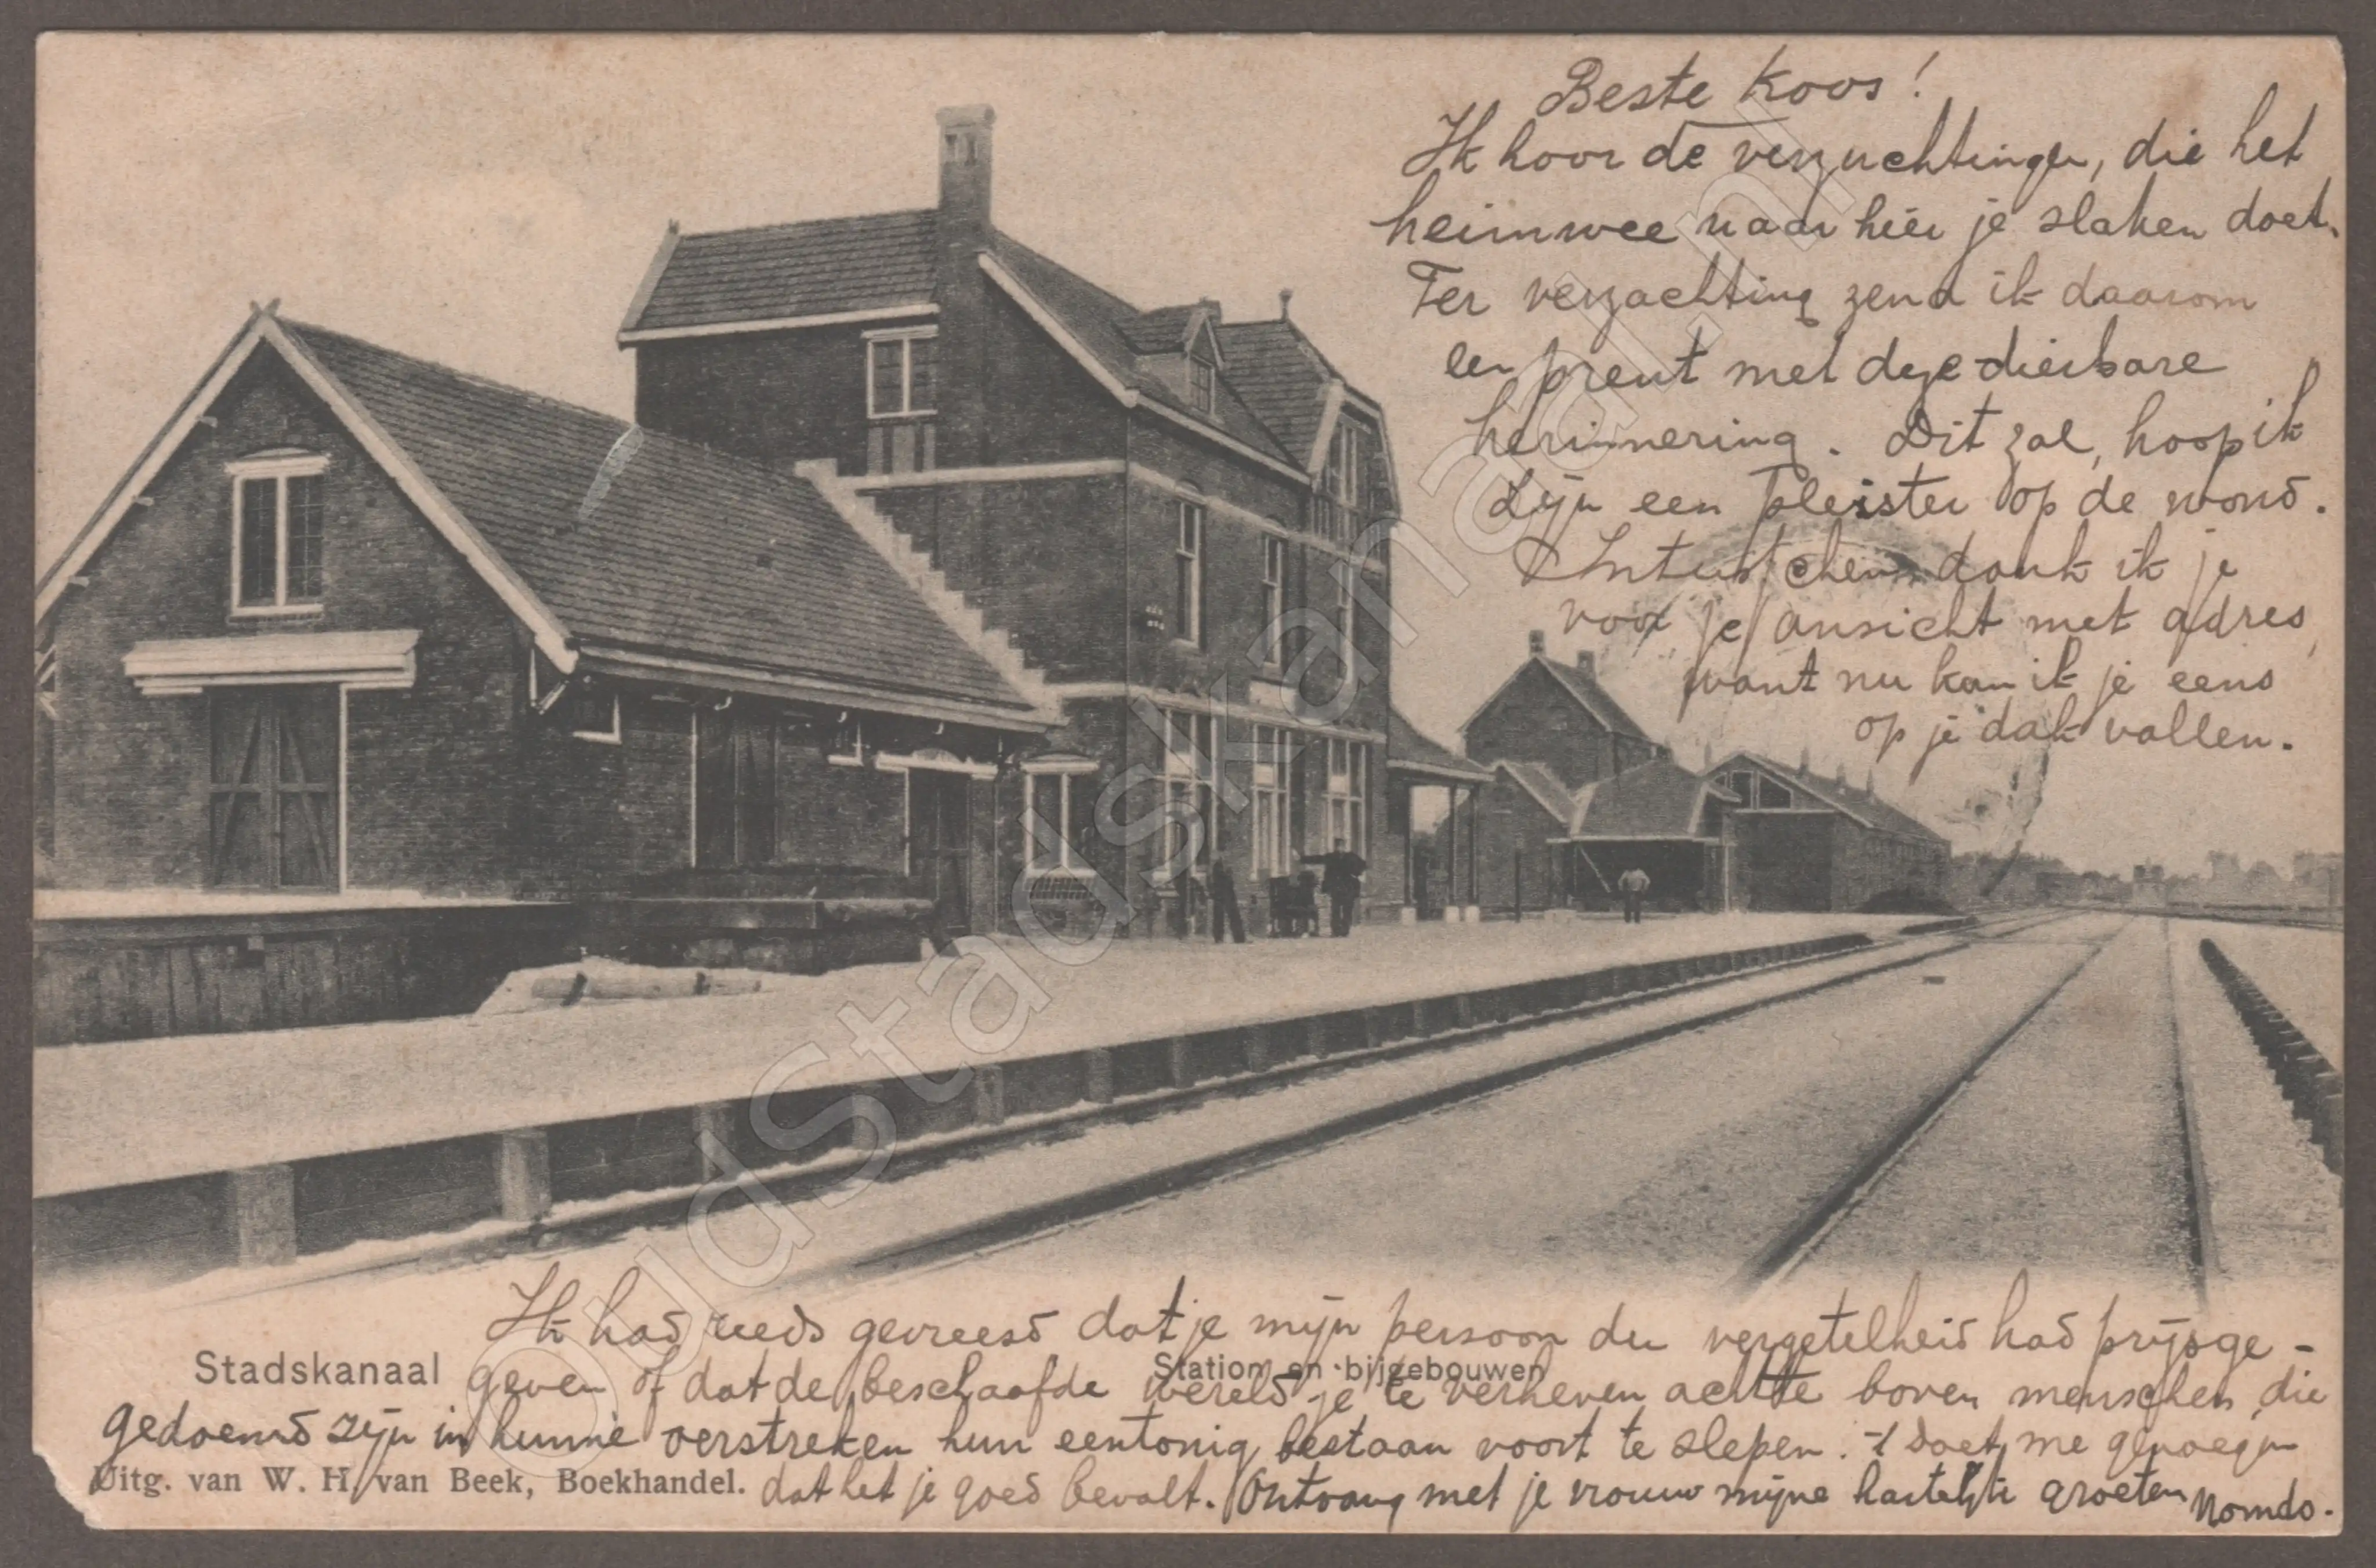 Beste Koos!
Ik hoor de verzuchtingen, die het
heimwee naar hier je slaken doet.
Ter verzachting zend ik daarom
een prent met deze dierbare
herinnering. Dit zal, hoop ik
zijn een pleister op de wond.
Intusschen dank ik je
voor je ansicht met adres,
want nu kan ik je eens
op je dak vallen.
Ik had reeds gevreesd dat je mijn persoon der vergetelheid had prijsge-
geven of dat de beschaafde wereld je te verheven achtte boven menschen, die
gedoemd zijn in hunne veenstreken hun eentonig bestaan voort te slepen. 't doet me genoegen
dat het je goed bevalt. Ontvang met je vrouw mijne hartelijke groeten
Stadskanaal
Station en bijgebouwen
Uitg. van W. H. van Beek, Boekhandel.
OudStadskanaal.nl